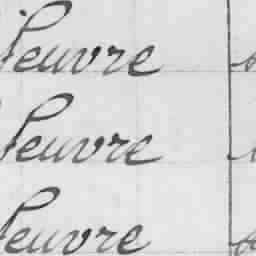 Peuvre
Peuvre
Peuvre